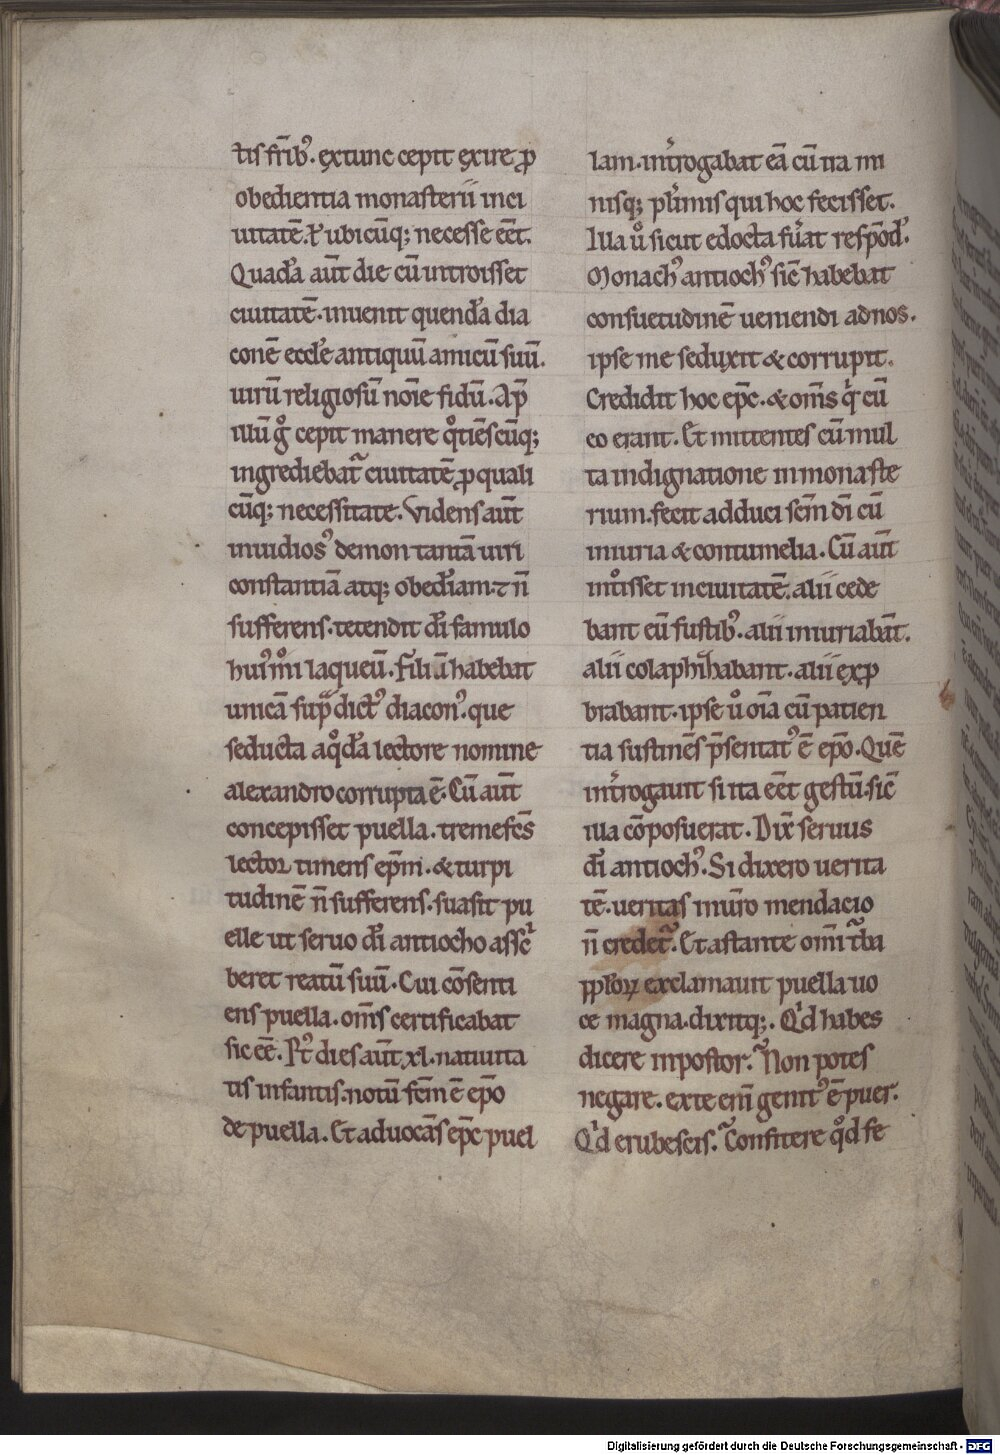 tis frīb᾽. extunc cepit exire ꝓ
obedientia monasterii inci
uitatē. ⁊ ubicūq; necesse eēt.
Quadā aūt die cū introisset
ciuitatē. inuenit quendā dia
conē eccłe antiquū amicū suū.
uirū religiosū noīe fidū. Ap̄
illū gͦ cepit manere qͦtiēscūq;
ingrediebat᷑ ciuitatē ꝓ quali
cūq; necessitate. Videns aūt
inuidios᾽ demon tantā uiri
constantiā atq; obedīam ⁊ n̄
sufferens. tetendit dī famulo
hui᾽mͦi laqueū. Filiā habebat
unicā supᷓdict᾽ diacon᾽. que
seducta a qͦdā lectore nomine
alexandro corrupta ē. Cū aūt
concepisset puella. tremefcs̄
lector timens epm̄. & turpi
tudinē n̄ sufferens. suasit pu
elle ut seruo dī antiocho assc͛
beret reatū suū. Cui cōsenti
ens puella. om̄s certificabat
sic eē. Pt᾽ dies aūt xl. natiuita
tis infantis. notū fcm̄ ē ep̄o
de puella. Et aduocās ep̄c puel
lam. int̓rogabat eā cū ira mi
nisq; plīmis qui hoc fecisset.
Illa uͦ sicut edocta fūat respōd᾽.
Monach᾽ antioch᾽ sic̄ habebat
consuetudinē ueniendi ad nos.
ipse me seduxit & corrupit.
Credidit hoc ep̄c. & om̄s qͥ cū
eo erant. Et mittentes cū mul
ta indignatione in monaste
rium. fecit adduci scm̄ dī cū
iniuria & contumelia. Cū aūt
int͏ͦisset inciuitatē. alii cede
bant eū fustib᾽. alii iniuriabāt.
alii colaphizabant. alii exꝓ
brabant. ipse uͦ oīa cū patien
tia sustinēs p̄sentat᾽ ē ep̄o. Quē
int̓rogauit si ita eēt gestū. sic̄
illa cōposuerat. Dix̄ seruus
dī antioch᾽. Si dixero uerita
tē. ueritas in ur̄o mendacio
n̄ credet᷑. Et astante om̄i t᷑ba
pplōꝝ exclamauit puella uo
ce magna. dixitq;. Qͥd habes
dicere inpostor? Non potes
negare. ex te eni᷑ genit᾽ ē puer.
Qͥd erubescis? Confitere qͦd fe
Digitalisierung gefördert durch die Deutsche Forschungsgemeinschaft - DFG